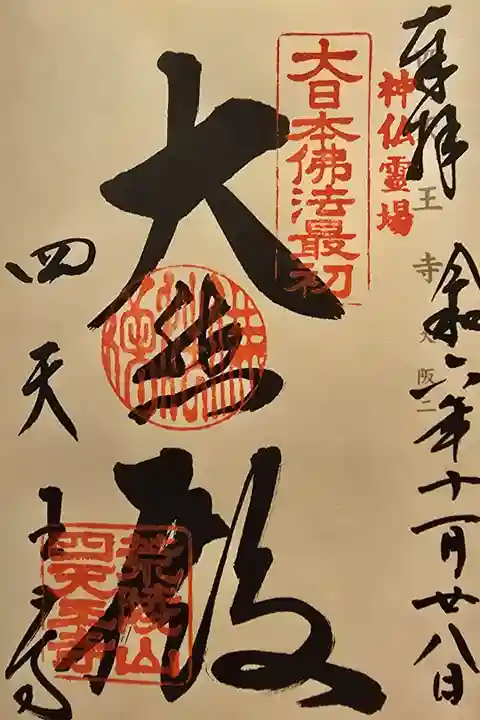 奉拝
神仏霊場
王寺 大阪二
令和六年十一月廿八日
大日本佛法最初
大悲殿
荒陵山
四天王寺
四天王寺